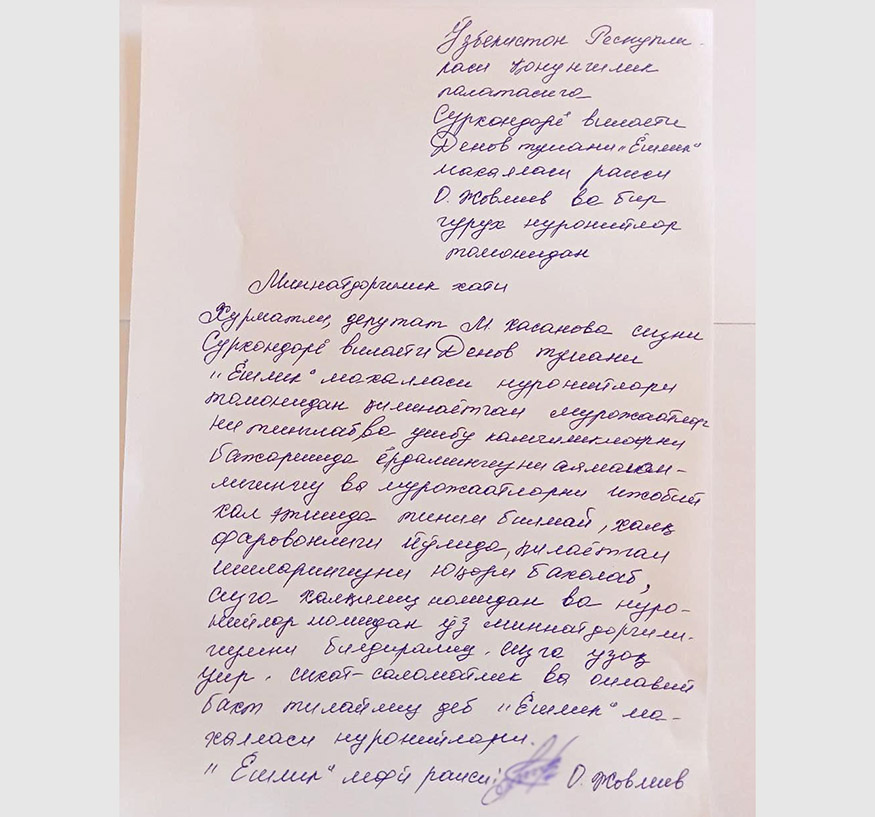 Ўзбекистон Республи-
каси қонунчилик
палатасига
Сурхондарё вилояти
Денов тумани "Ёшлик"
махалласи раиси
О. Жовлиев ва бир
гурух нуронийлар
томонидан
Миннатдорчилик хати
Хурматли, депутат М Хасанова сизни
Сурхондарё вилояти Денов тумани
"Ёшлик" махалласи нуронийлари
томонидан қилинаётган мурожаатлар
ни тинглаб ва ушбу камчиликларни
бажаришда ёрдамингизни аямаган-
лигингиз ва мурожаатларни ижобий
хал этишда тиним билмай, халқ
фаровонлиги йўлида, қилаётган
ишларингизни юқори бахолаб,
сизга халқимиз номидан ва нуро-
нийлар номидан ўз миннатдорчили-
гимизни билдирамиз. сизга узоқ
умр. сихат-саломатлик ва оилавий
бахт тилаймиз деб "Ёшлик" ма-
халласи нуронийлари.
"Ёшлик" мфй раиси: О. Жовлиев